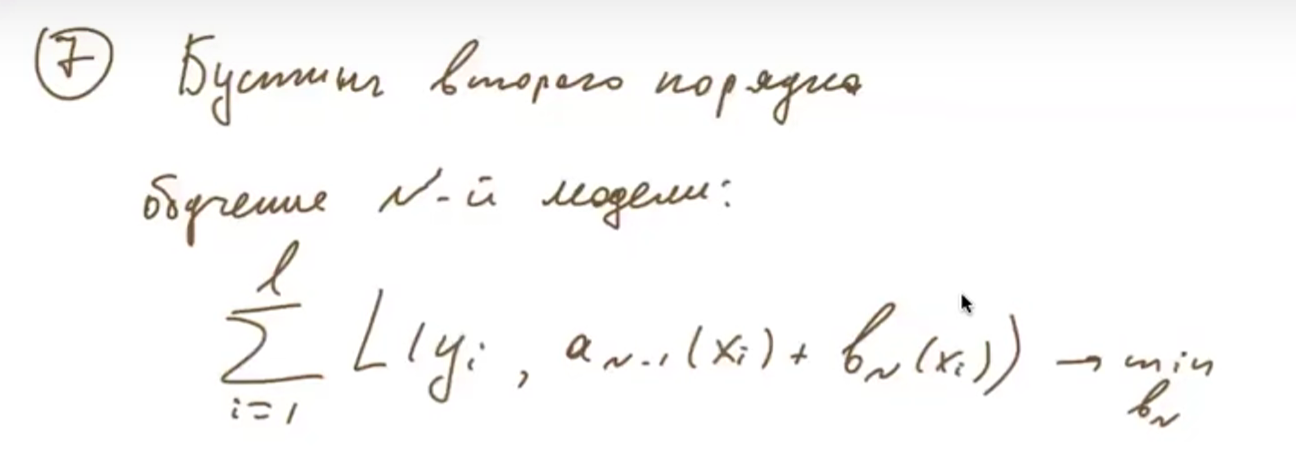 ⑦ Бустинг второго порядка
обучение N-й модели:
∑_{i=1}^{l} L(y_i, a_{N-1}(x_i) + b_N(x_i)) → min_{b_N}